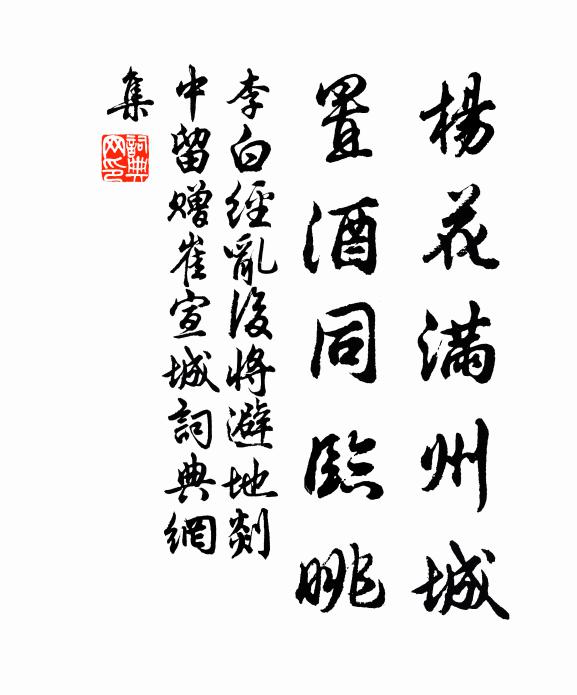 楊花滿州城
置酒同臨眺
李白經亂後將避地剡
中留贈崔宣城詞典網
集
詞典
网印